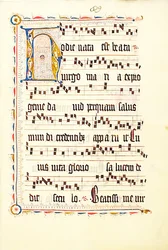 Hodie nata est beata
virgo maria ex pro
genie da uid per quam salus
mun di credentibus appa ru it Cu
ius uita glorio sa lucem de
dit secu lo. Beatissi me uir